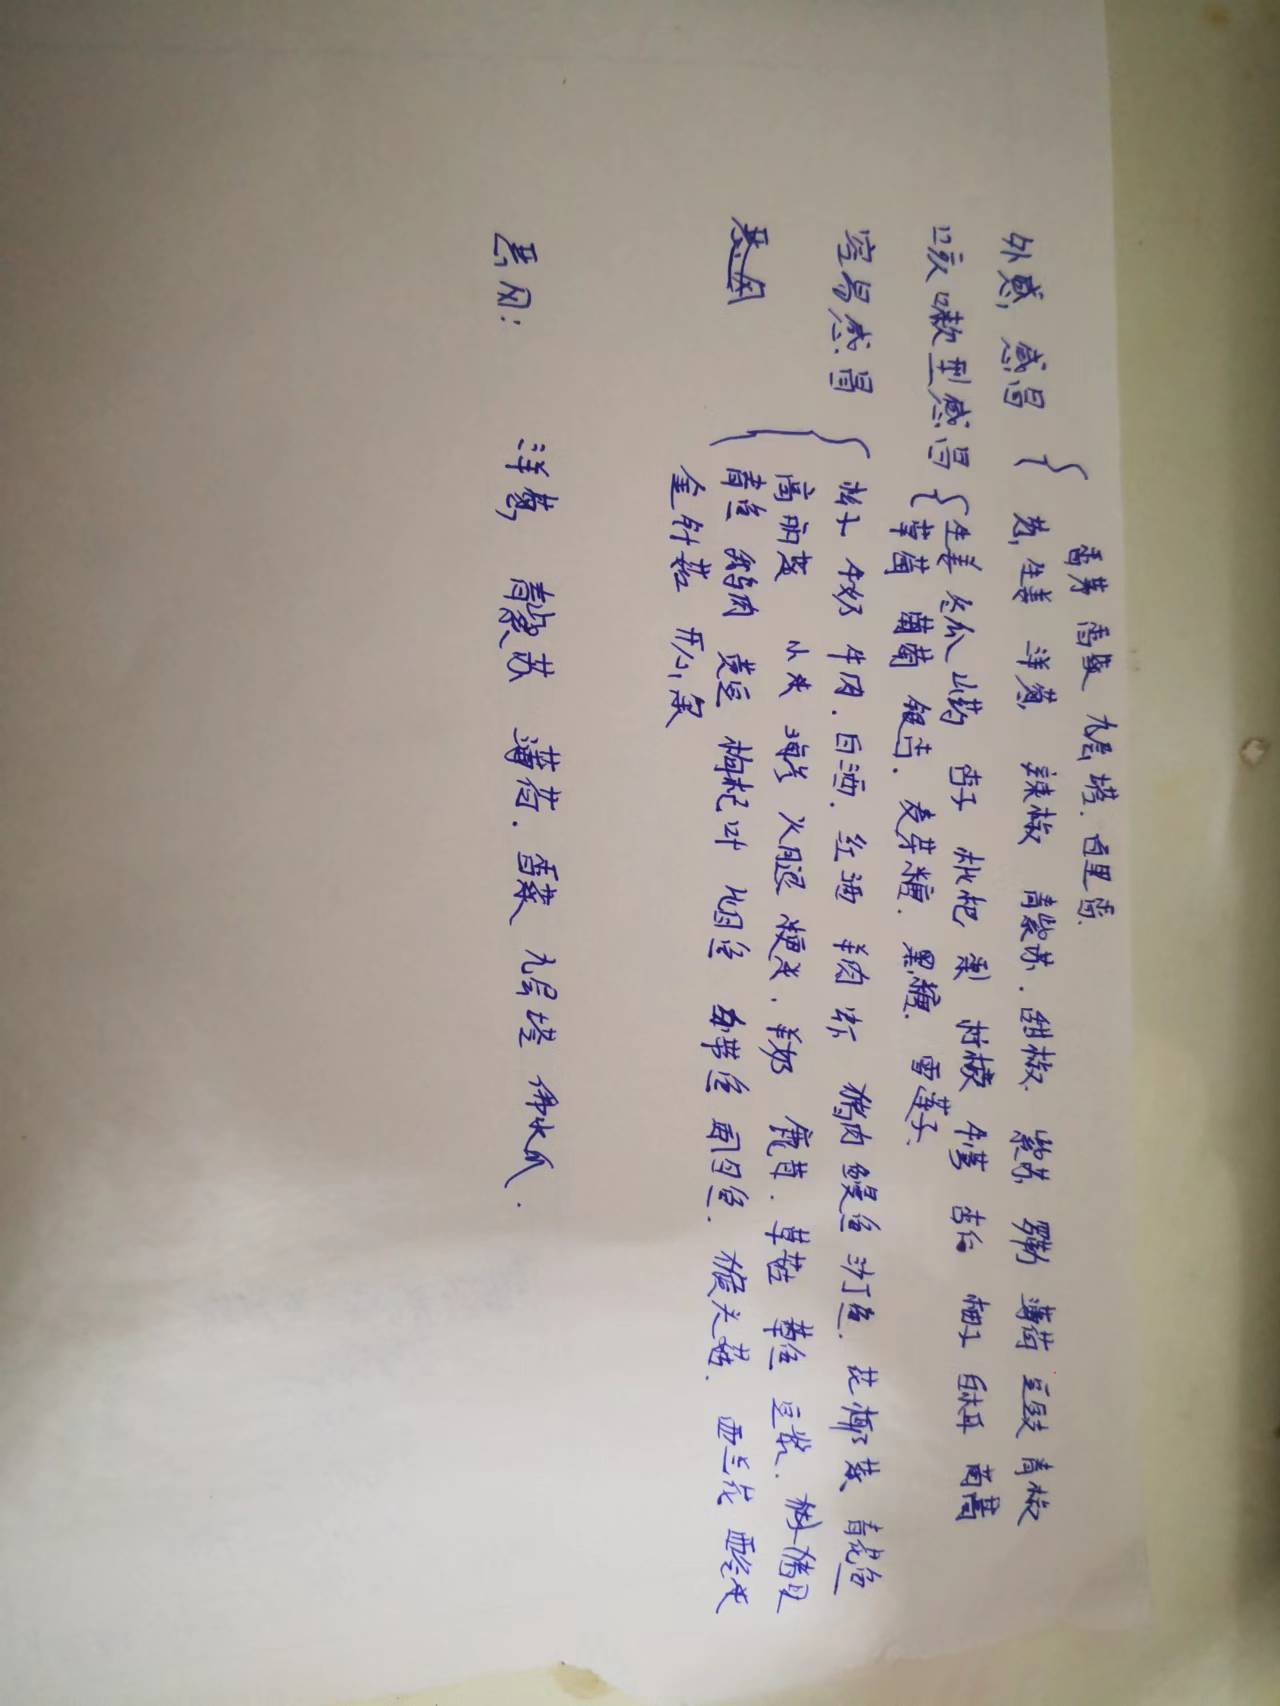 香茅 香菜 九层塔. 百里香.
外感, 感冒 { 葱, 生姜 洋葱, 辣椒 青紫苏. 甜椒. 紫苏 罗勒 薄荷 豆豉 青椒
咳嗽型感冒 { 生姜 冬瓜 山药 杏子 枇杷 梨 柠檬 牛蒡 杏仁 柚子 茼蒿
草莓 葡萄 银杏. 麦芽糖. 黑糖. 雪莲子.
容易感冒 { 松子 牛奶 牛肉. 白酒. 红酒 羊肉 虾 猪肉 鳗鱼 沙丁鱼. 花椰菜 青花鱼
高丽菜 小米 海参 火腿 粳米. 羊奶 鹿茸. 草菇 章鱼 豆浆.
恶风 青鱼 鹅肉 黄豆 枸杞叶 比目鱼 白带鱼 鱼. 猴头菇. 西兰花
金针菇 开心果
恶风: 洋葱, 青紫苏 薄荷. 香菜 九层塔 佛水瓜.